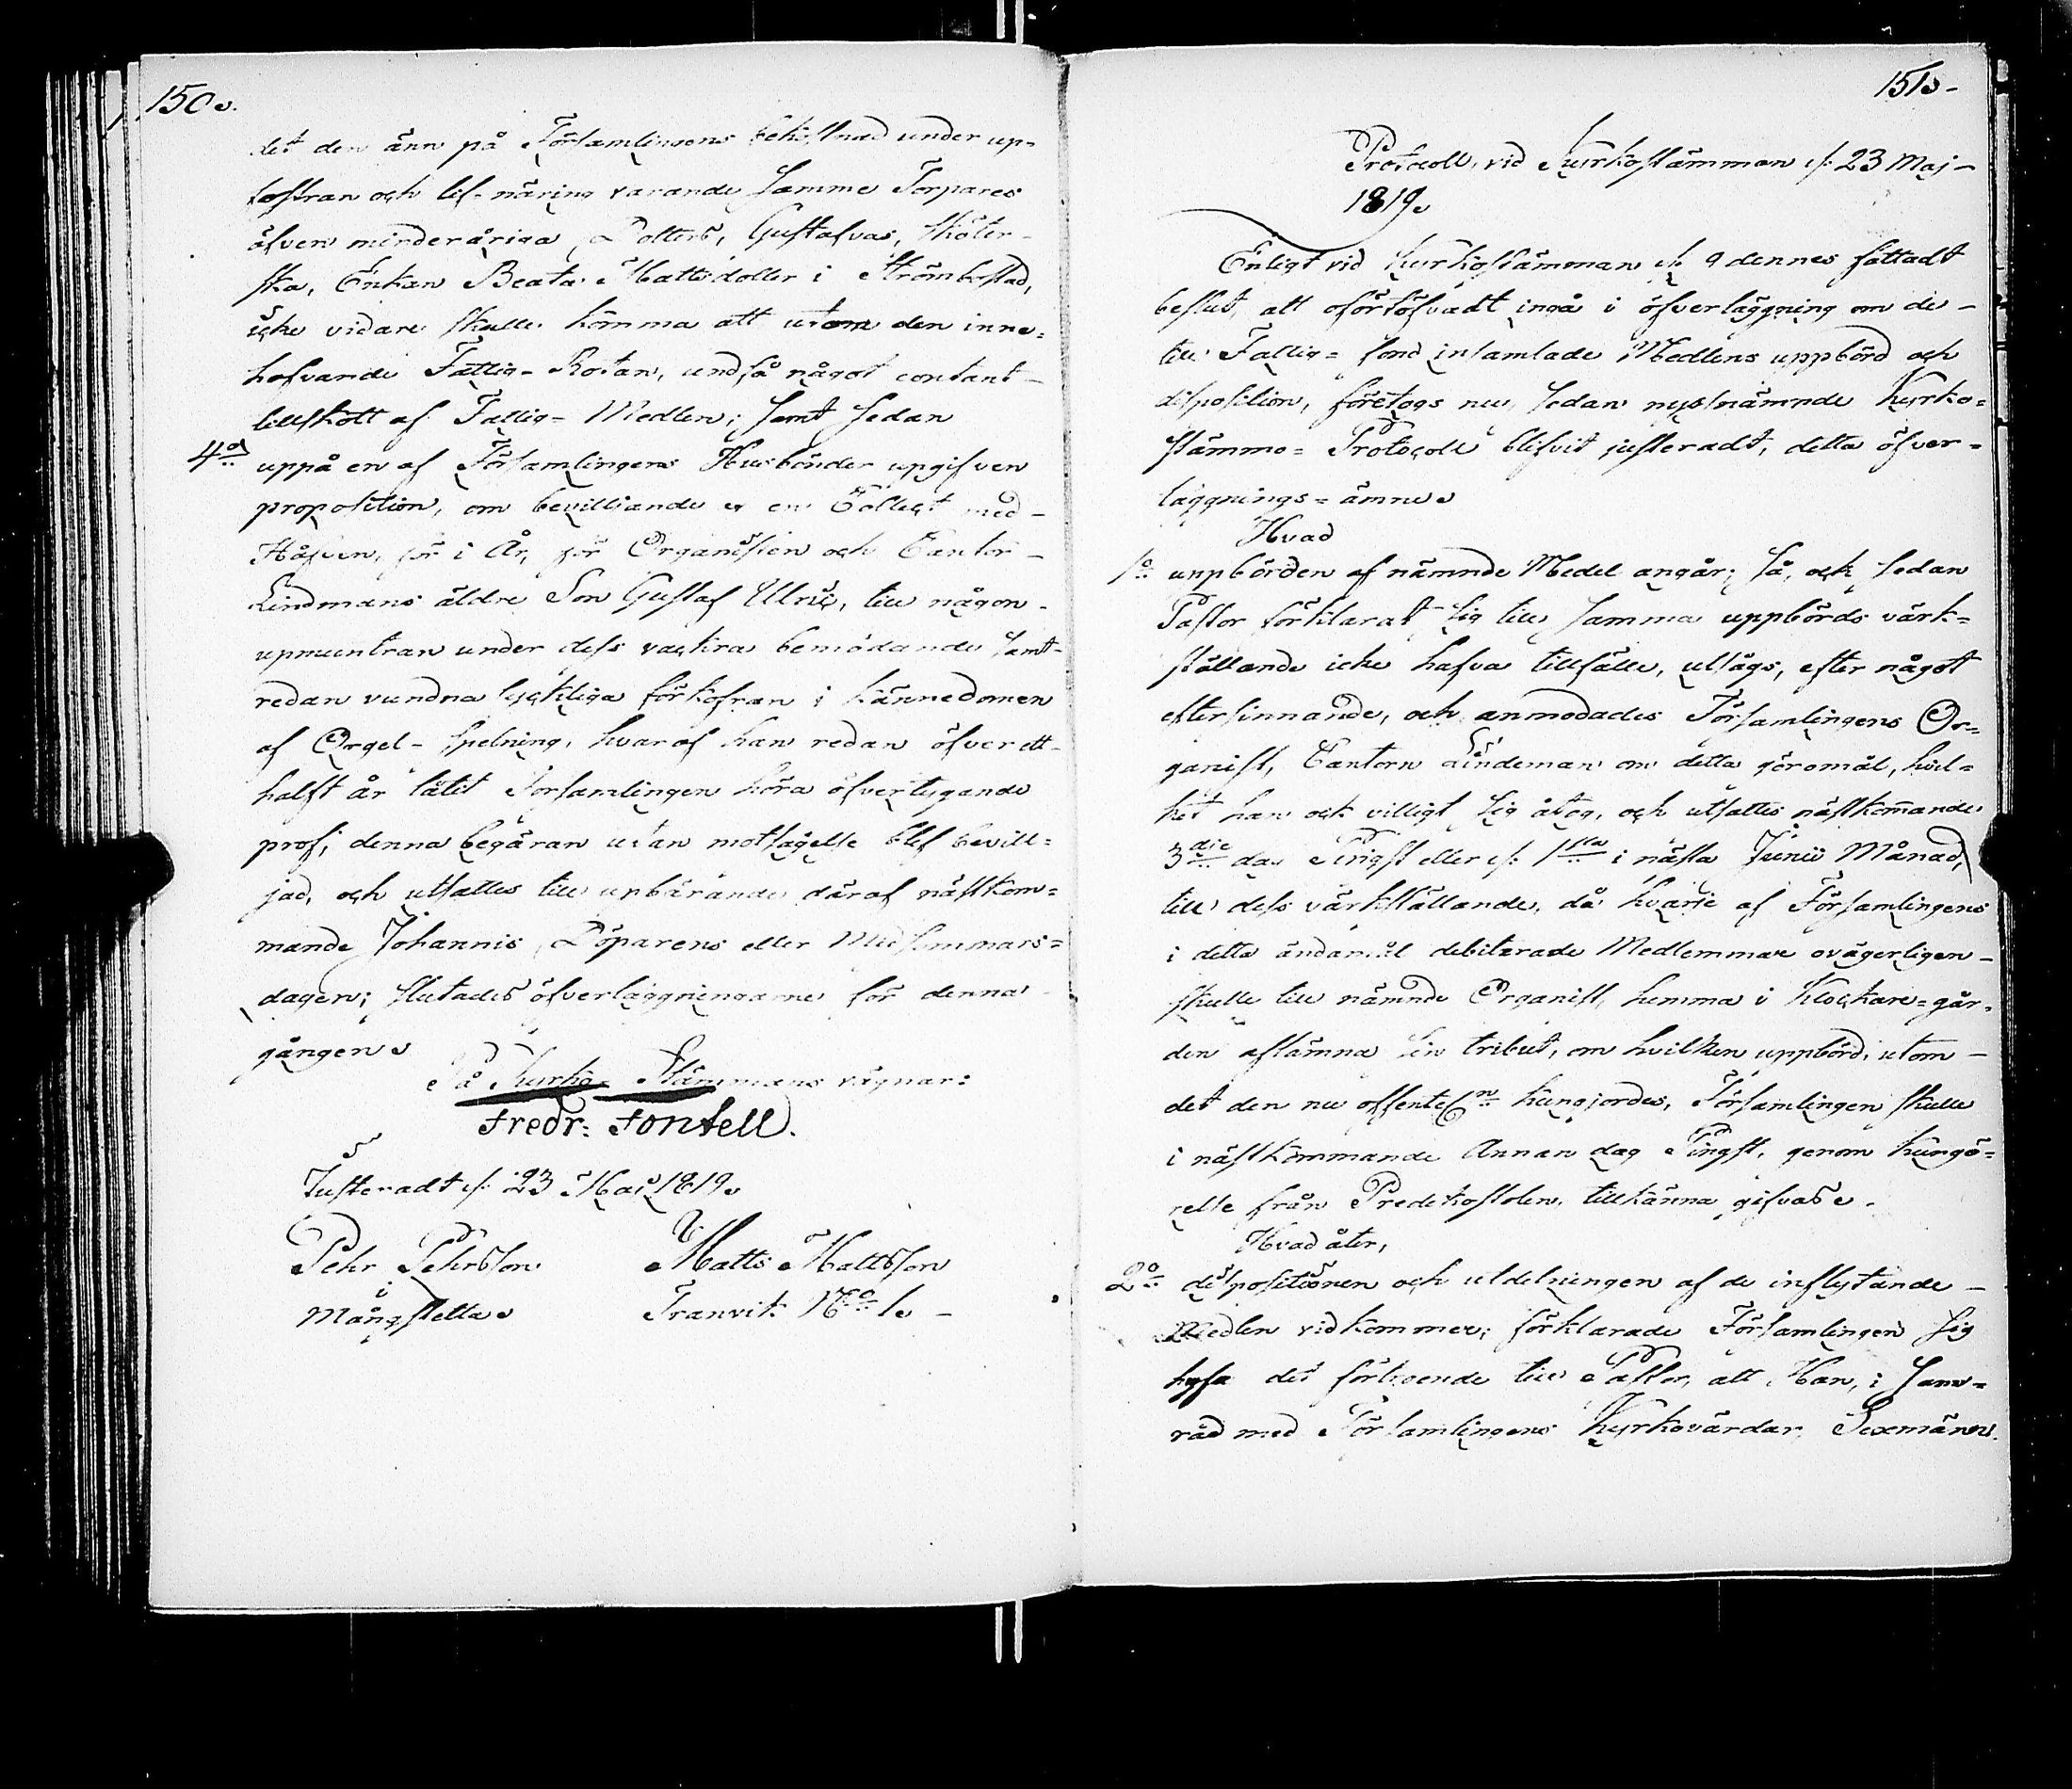 150.
det den änn på Församlingens bekostnad under up-
fostran och lif-näring varande samme Torpares
öfven minderåriga Dotters, Gustafvas, sköter-
ska, Enkan Beata Mattsdotter i Strömbostad,
icke vidare skulle komma att utom den inne-
hafvande Fattig-Rotan, undfå något contant-
tillskott af Fattig-Medlen; samt sedan
4o uppå en af Församlingens Husbönder upgifven
proposition, om bevilliande af en Collect med-
Håfven, för i År, för Organisten och Cantor-
Lindmans äldre Son Gustaf Ulric, till någon-
upmuntran under dess vackra bemödande samt-
redan vundna lyckliga förkofran i kännedomen
af Orgel-spelning, hvaraf han redan öfver ett-
halft år låtit Församlingen höra öfvertygande
prof; denna begäran utan motsägelse blef bevill-
jad, och utsattes till upbärande däraf nästkom-
mande Johannis Döparens eller Midsommars-
dagen; slutades öfverläggningarne för denna
gången.
På Kyrko-Stämmans vägnar:
Fredr: Fontell.
Justeradt d. 23 Maij 1819.
Pehr Pehrsson Matts Mattsson
Mångstetta. Tranvik No 1. -
151.-
Protocoll, vid Kyrkostämman d. 23 Maj-
1819.
Enligt vid Kyrkostämman d. 9 dennes fattadt
beslut, att oförtöfvadt ingå i öfverläggning om de-
till Fattig-fond insamlade Medlens uppbörd och
disposition, företogs nu, sedan nyssnämnde Kyrko-
stämmo-Protocoll blifvit justeradt, detta öfver-
läggnings-ämne.
Hvad
1o uppbörden af nämnde Medel angår; så, och sedan
Pastor förklarat sig till samma uppbörds värk-
ställande icke hafva tillfälle, utsågs, efter något
eftersinnande, och anmodades Församlingens Or-
ganist, Cantorn Lindeman om detta göromål, hvil-
ket han ock villigt sig åtog, och utsattes nästkommande
3die dag Pingst eller d. 1sta i nästa Junii Månad,
till dess värkställande, då hvarje af Församlingens
i detta ändamål debiterade Medlemmar ovägerligen-
skulle till nämnde Organist, hemma i Klockare-går-
den aflämna sin tribut, om hvilken uppbörd, utom-
det den nu offentln kungjordes, Församlingen skulle
i nästkommande Annan dag Pingst, genom kungö-
relse från Predikostolen, tillkänna gifvas.
Hvad åter,
2o dispositionen och utdelningen af de inflytande-
Medlen vidkommer; förklarade Församlingen sig
hysa det förtroende till Pastor, att Han, i sam-
råd med Församlingens Kyrkovärdar, Sexmänn.